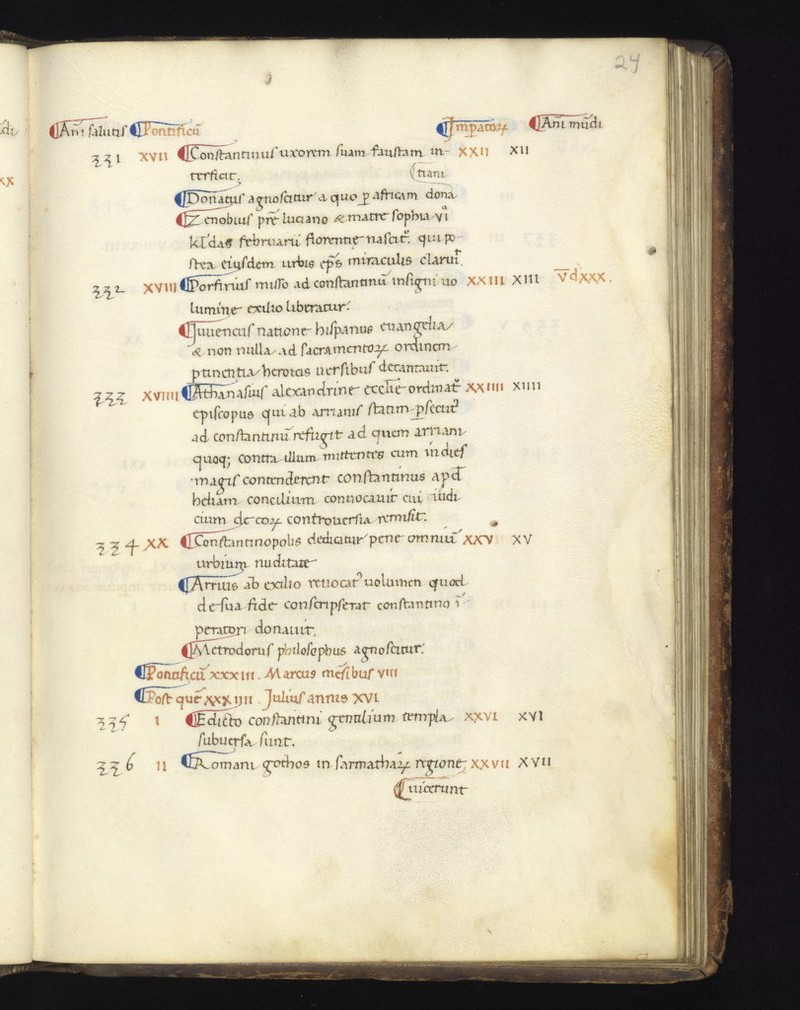 24
Añi salutis Pontificũ Impatoꝝ Añi mũdi
331 XVII Constantinus uxorem suam faustam in- XXII XII
terficit. (tiani
Donatus agnoscitur a quo ꝑ africam dona
Zenobius prẽ luciano & matre sophia vi
kl̃das februarii florentie nascit᷒. qui po-
stea eiusdem urbis ep̃s miraculis claruit
332 XVIII Porfirius misso ad constantinũ insigni uo XXIII XIII V̅dXXX.
lumine exilio liberatur.
Iuuencus natione hispanus euangelia
& non nulla ad sacramentoꝝ ordinem
ptinentia heroicis uersibus decantauit.
333 XVIIII Athanasius alexandrine ecclẽ ordinat᷒ XXIIII XIIII
episcopus qui ab arrianis statim ꝑsecut᷒
ad constantinũ refugit ad quem arriani
quoq; contra illum mittentes cum in dies
magis contenderent constantinus apd̃
heliam concilium conuocauit cui iudi
cium de eoꝝ controuersia remisit.
334 XX Constantinopolis dedicatur pene omniũ XXV XV
urbium nuditate
Arrius ab exilio reuocat᷒ uolumen quod
de sua fide conscripserat constantino ĩ-
peratori donauit.
Metrodorus philosophus agnoscitur.
Pontificũ XXXIII. Marcus mẽsibus VIII
Post quẽ XXXIIII. Julius annis XVI
335 I Edicto constantini gentilium templa XXVI XVI
subuersa sunt.
336 II Romani gothos in sarmathaꝝ regione XXVII XVII
uicerunt